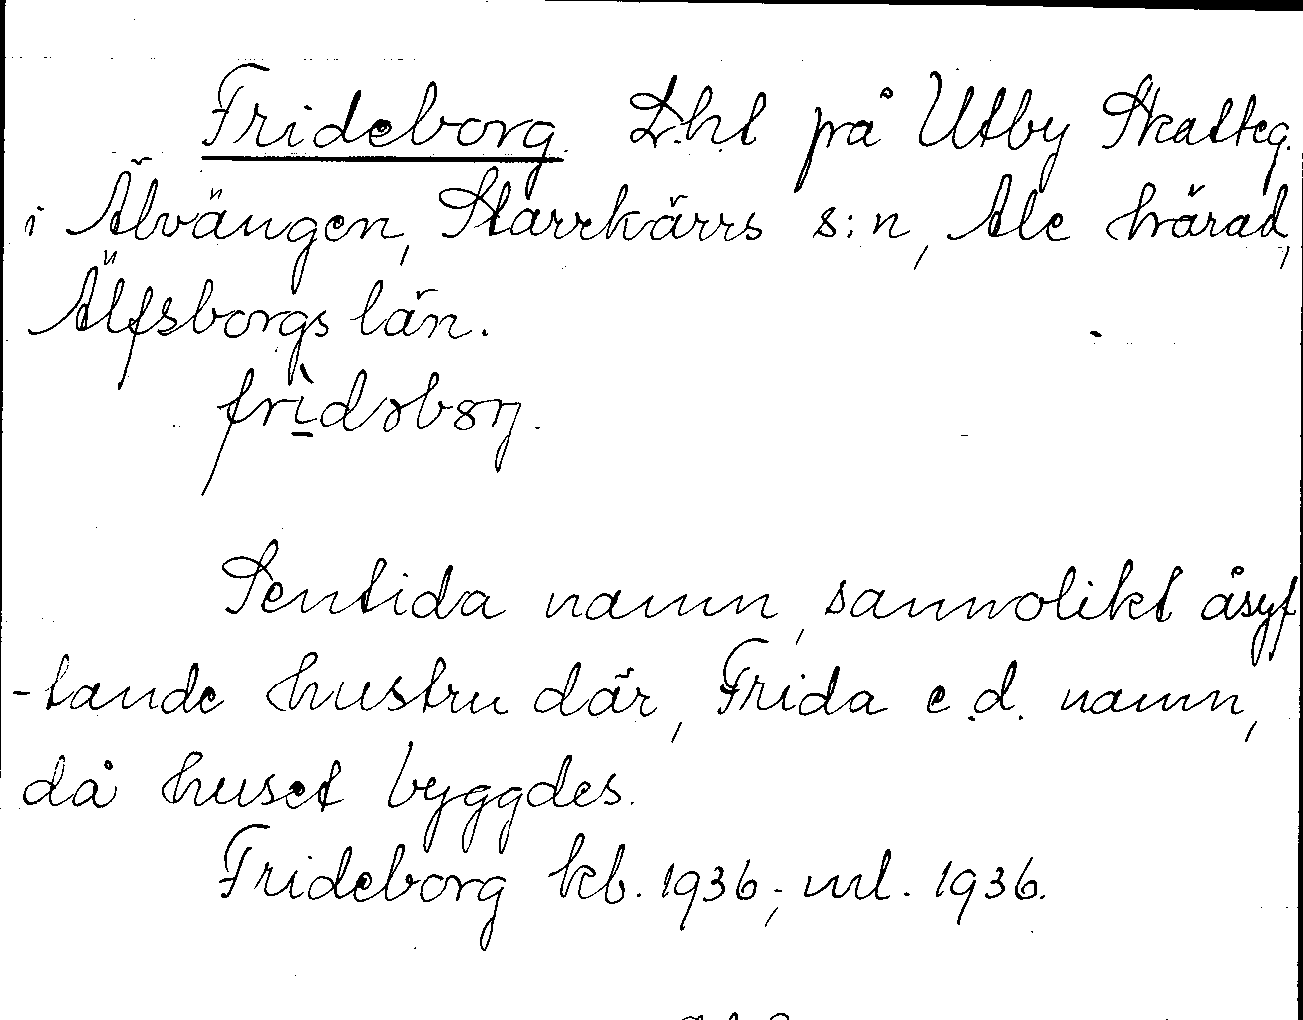 Frideborg. Lht på Utby Skatteg.
i Älvängen, Starrkärrs s:n, Ale härad,
Älfsborgs län.
Sentida namn, sannolikt åsyf
-tande hustru där, Frida e.d. namn,
då huset byggdes.
Frideborg kb. 1936; ml. 1936.